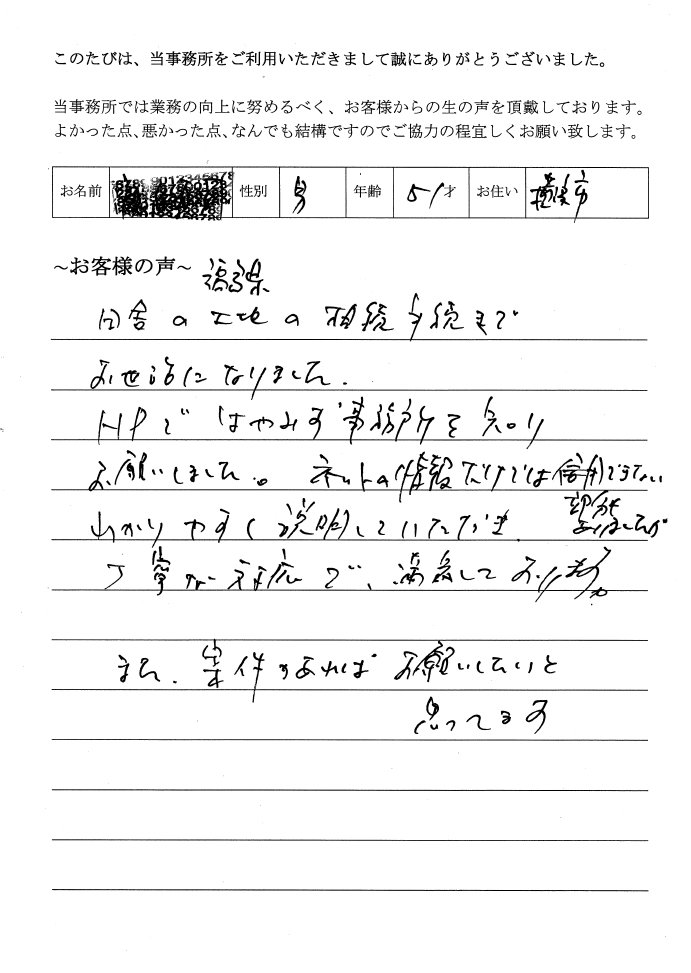 このたびは、当事務所をご利用いただきまして誠にありがとうございました。
当事務所では業務の向上に努めるべく、お客様からの生の声を頂戴しております。
よかった点、悪かった点、なんでも結構ですのでご協力の程宜しくお願い致します。
お名前 性別 男 年齢 51才 お住い 横浜市
~お客様の声~ 福島県
田舎の土地の相続手続まで
お世話になりました.
HPで はやみず事務所を知り
お願いしました。ネットの情報だけでは信用できない
わかりやすく説明していただき
丁寧な対応で、満足しております。
また、案件があればお願いしたいと
思ってます